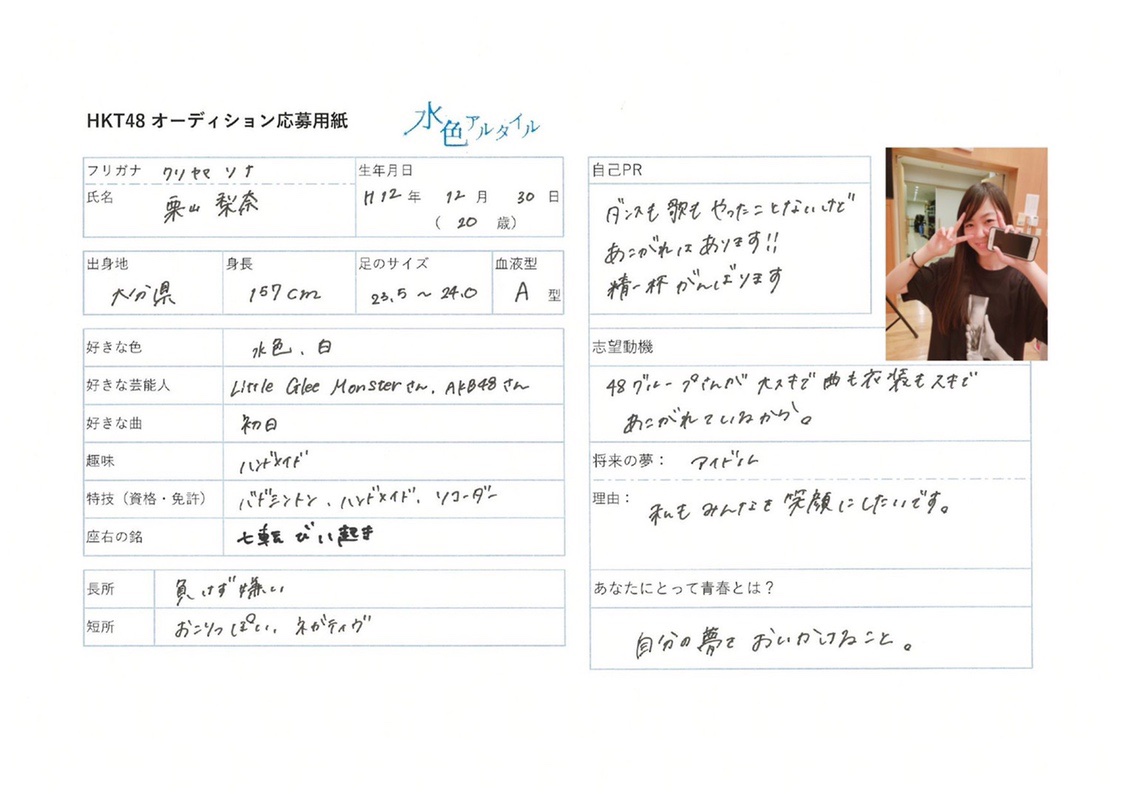 HKT48 オーディション応募用紙
水色アルタイル
フリガナ クリヤマ リナ
氏名 栗山 梨奈
生年月日
H12年 12月 30日
(20歳)
出身地
大分県
身長
157cm
足のサイズ
23.5～24.0
血液型
A型
好きな色 水色、白
好きな芸能人 Little Glee Monsterさん、AKB48さん
好きな曲 初日
趣味 ハンドメイド
特技（資格・免許） バドミントン、ハンドメイド、リコーダー
座右の銘 七転び八起き
長所 負けず嫌い
短所 おこりっぽい、ネガティヴ
自己PR
ダンスも歌もやったことないけど
あこがれはあります!!
精一杯がんばります
志望動機
48グループさんが大スキで曲も衣装もスキで
あこがれているから。
将来の夢： アイドル
理由： 私もみんなを笑顔にしたいです。
あなたにとって青春とは？
自分の夢をおいかけること。